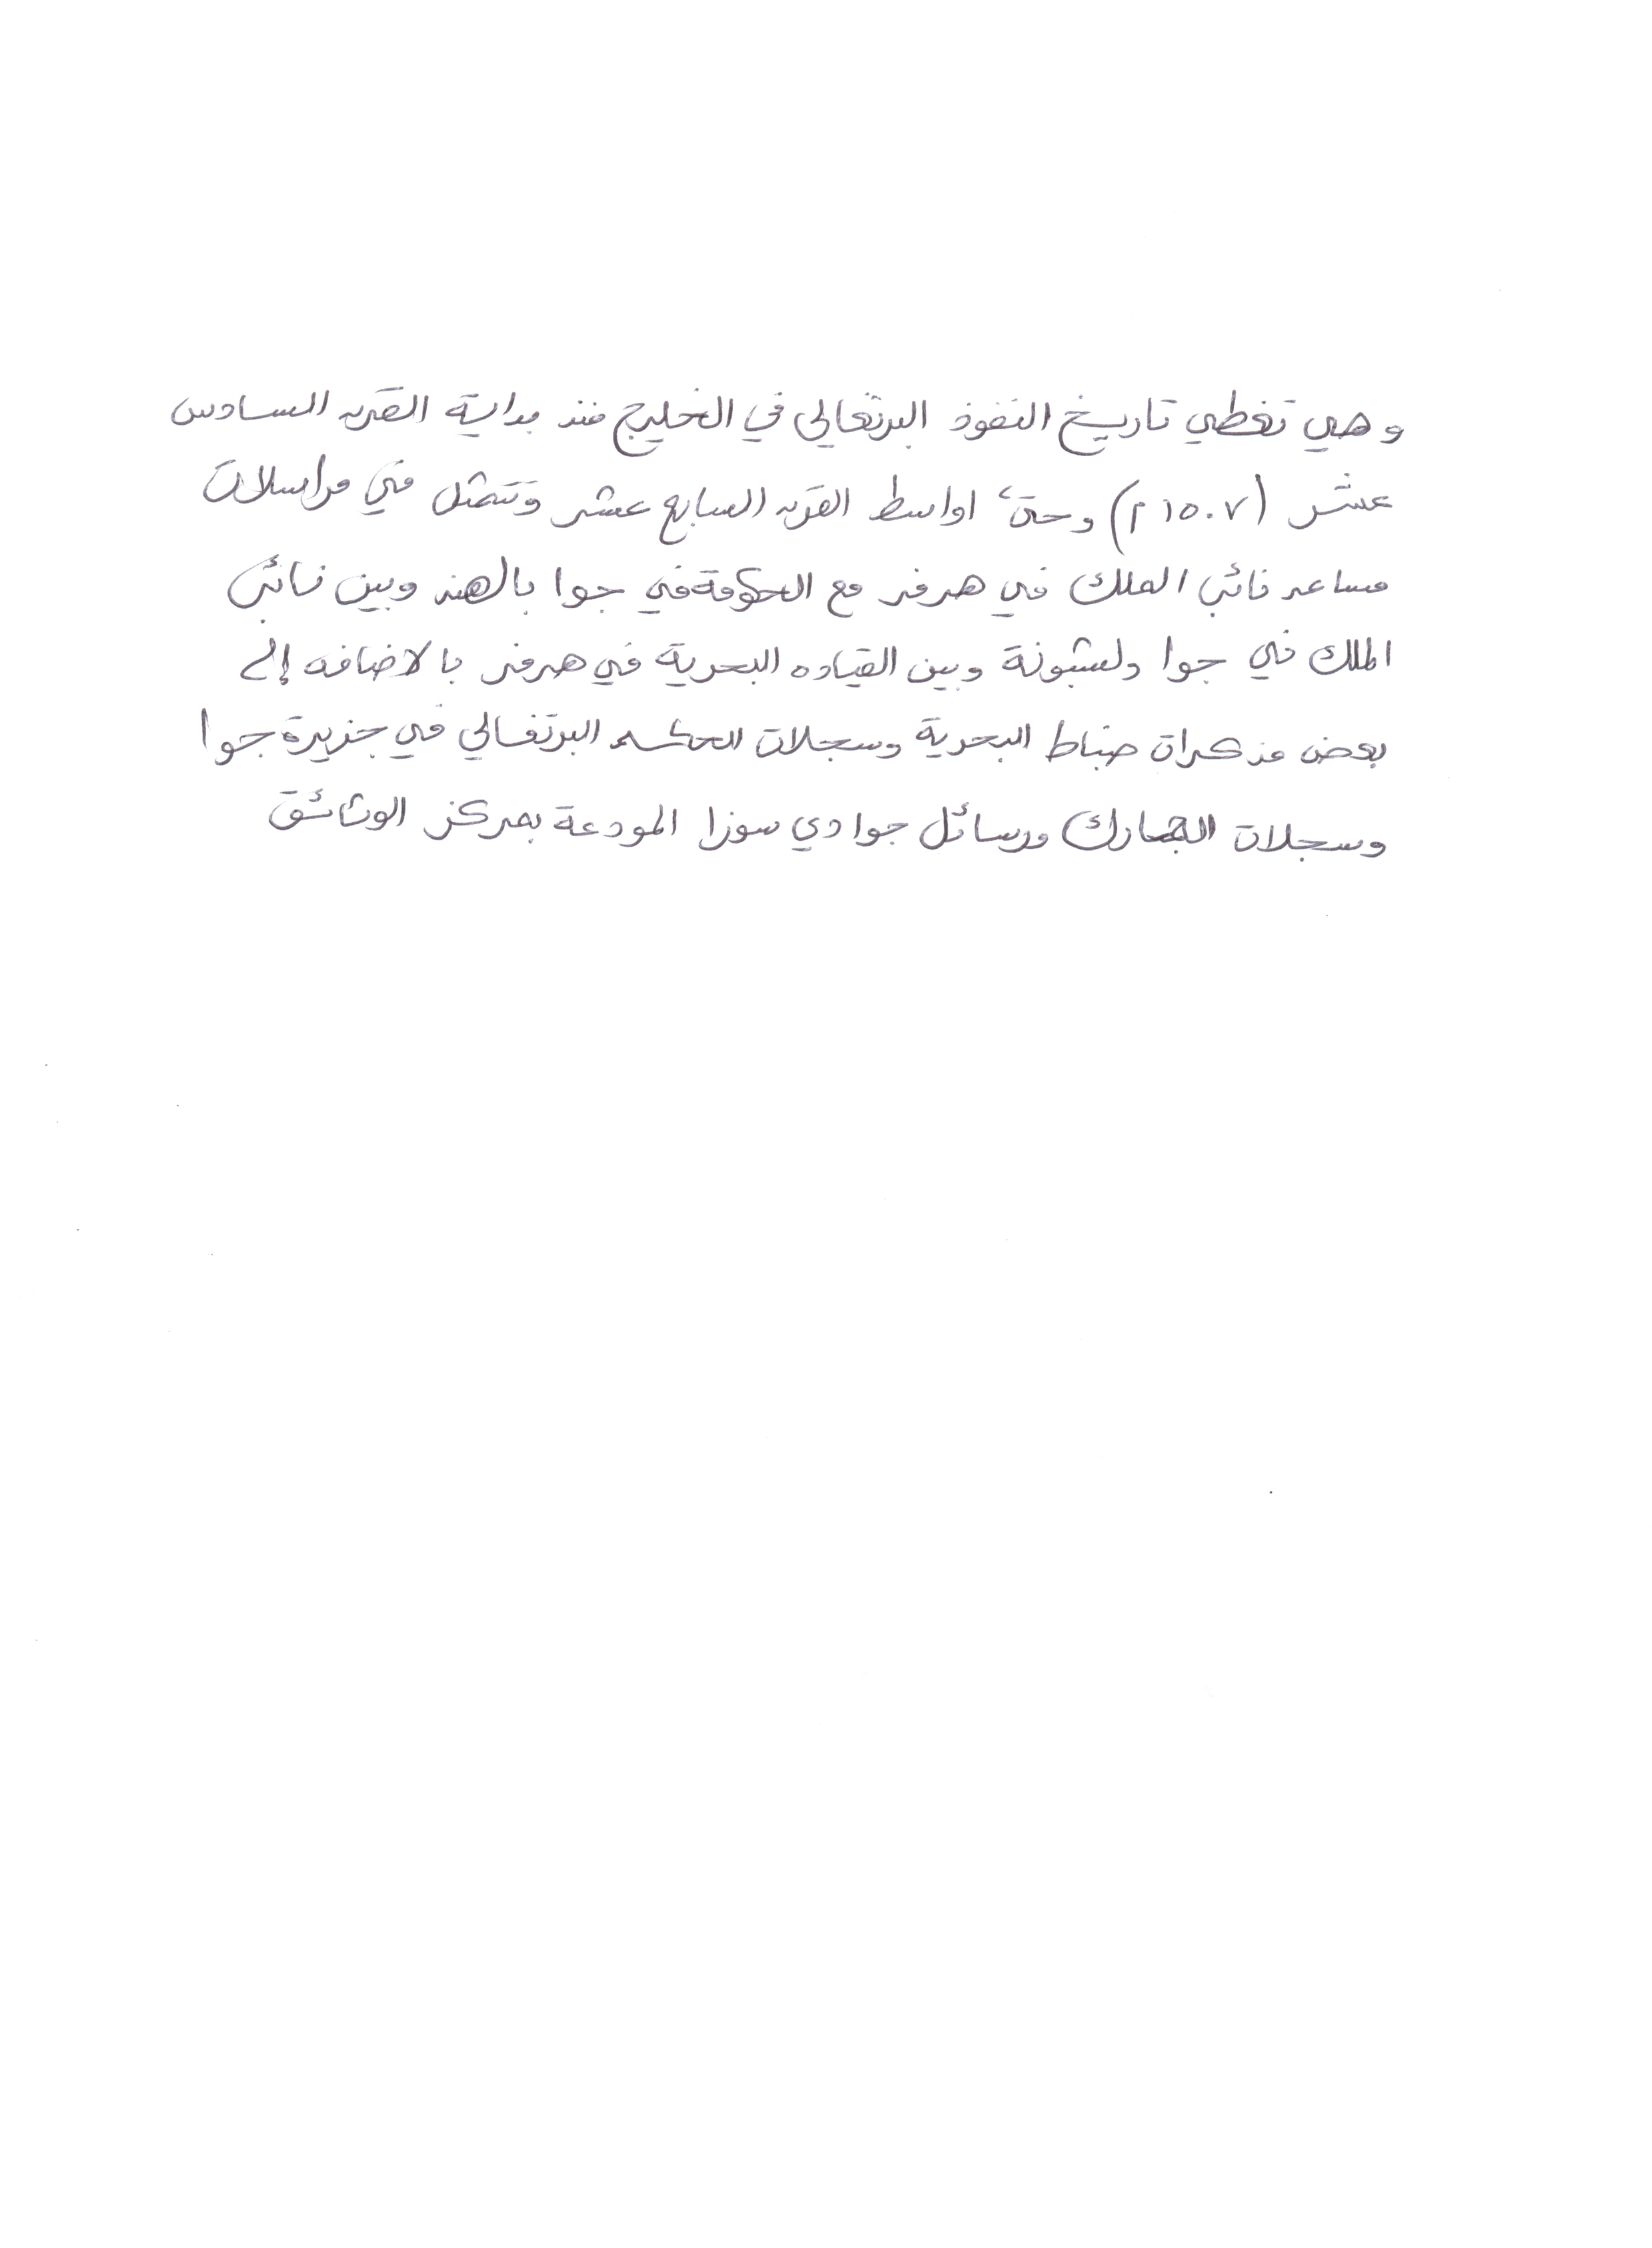 وهي تغطي تاريخ النفوذ البرتغالي في الخليج منذ بداية القرن السادس
عشر (١٥٠٧ م) وحتى اواسط القرن السابع عشر وتتمثل في مراسلات
مساعد نائب الملك في هرمز مع الحكومة في جوا بالهند وبين نائب
الملك في جوا ولشبونة وبين القياده البحرية في هرمز بالاضافه إلى
بعض مذكرات ضباط البحرية وسجلات الحكم البرتغالي في جزيرة جوا
وسجلات الجمارك ورسائل جوا دي سوزا المودعة بمركز الوثائق